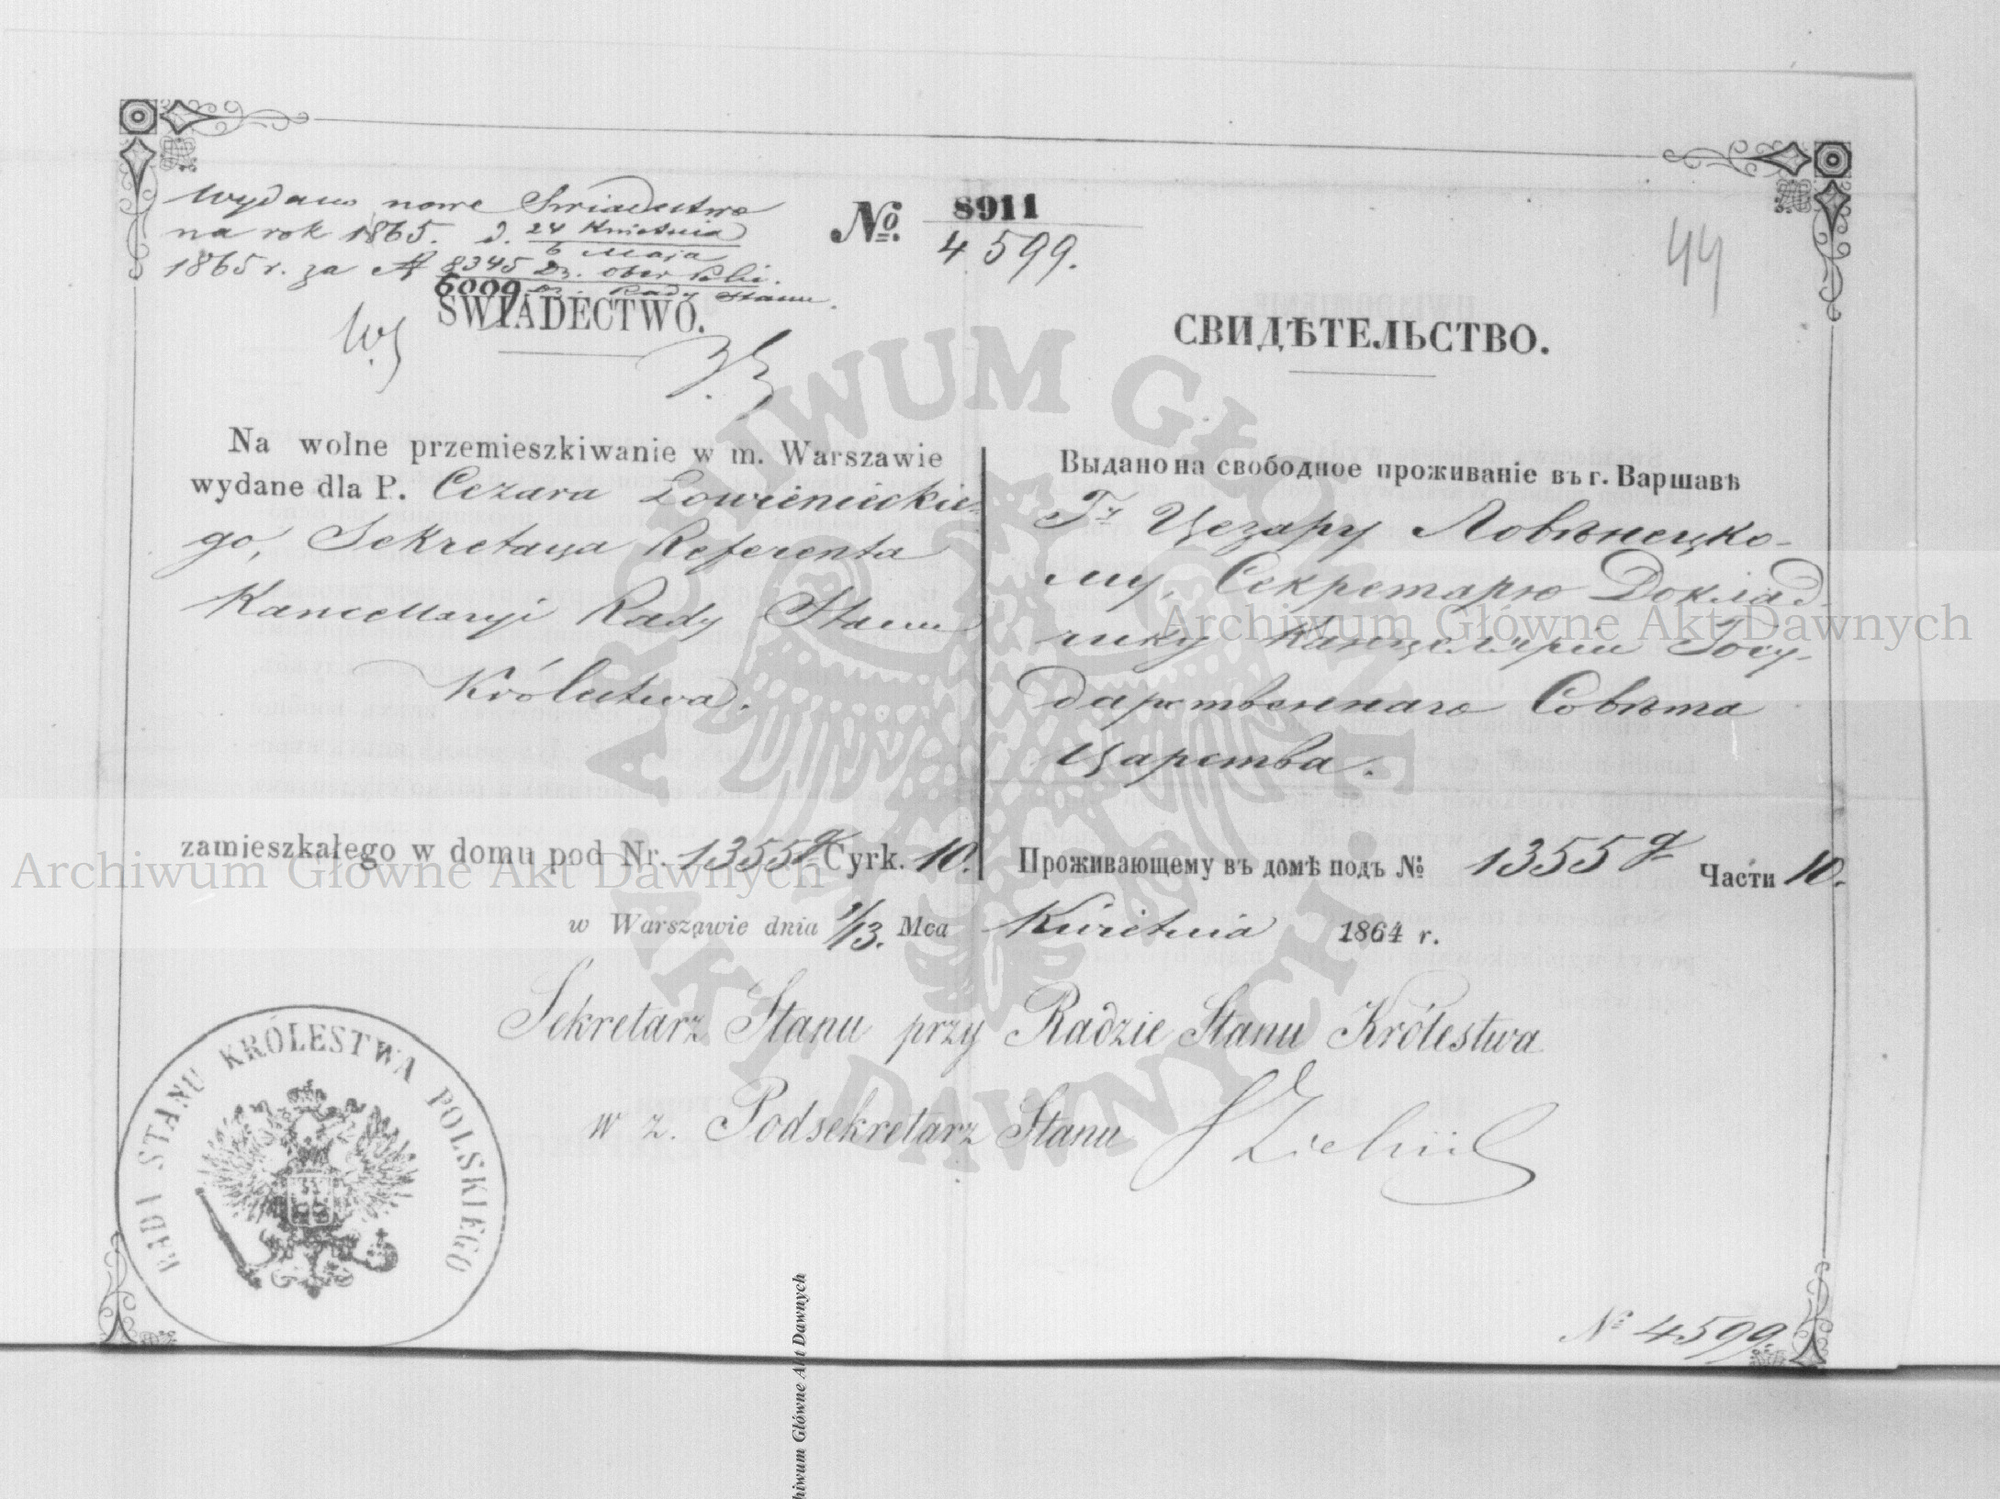 Wydano nowe Swiadectwo
na rok 1865. d. 24 Kwietnia
6 Maja
1865 r. za № 8345 Dz. Ober Poli.
6009 Dz. Rady Stanu.
№ 8911
4599.
44
ŚWIADECTWO.
СВИДѢТЕЛЬСТВО.
Na wolne przemieszkiwanie w m. Warszawie
wydane dla P. Cezara Łowienieckie-
go, Sekretarza Referenta
Kancellaryi Rady Stanu
Królestwa.
zamieszkałego w domu pod Nr. 1355 g Cyrk. 10.
Выдано на свободное проживаніе въ г. Варшавѣ
Гу Цезару Ловѣнецко-
му, Секретарю Доклад-
чику Канцеляріи Госу-
дарственнаго Совѣта
Царства.
Проживающему въ домѣ подъ № 1355 g Части 10.
w Warszawie dnia 1/13. Mca Kwietnia 1864 r.
Sekretarz Stanu przy Radzie Stanu Królestwa
w z. Podsekretarz Stanu
RADY STANU KRÓLESTWA POLSKIEGO
№ 4599.
ARCHIWUM GŁÓWNE AKT DAWNYCH
Archiwum Główne Akt Dawnych
Archiwum Główne Akt Dawnych
hiwum Główne Akt Dawnych